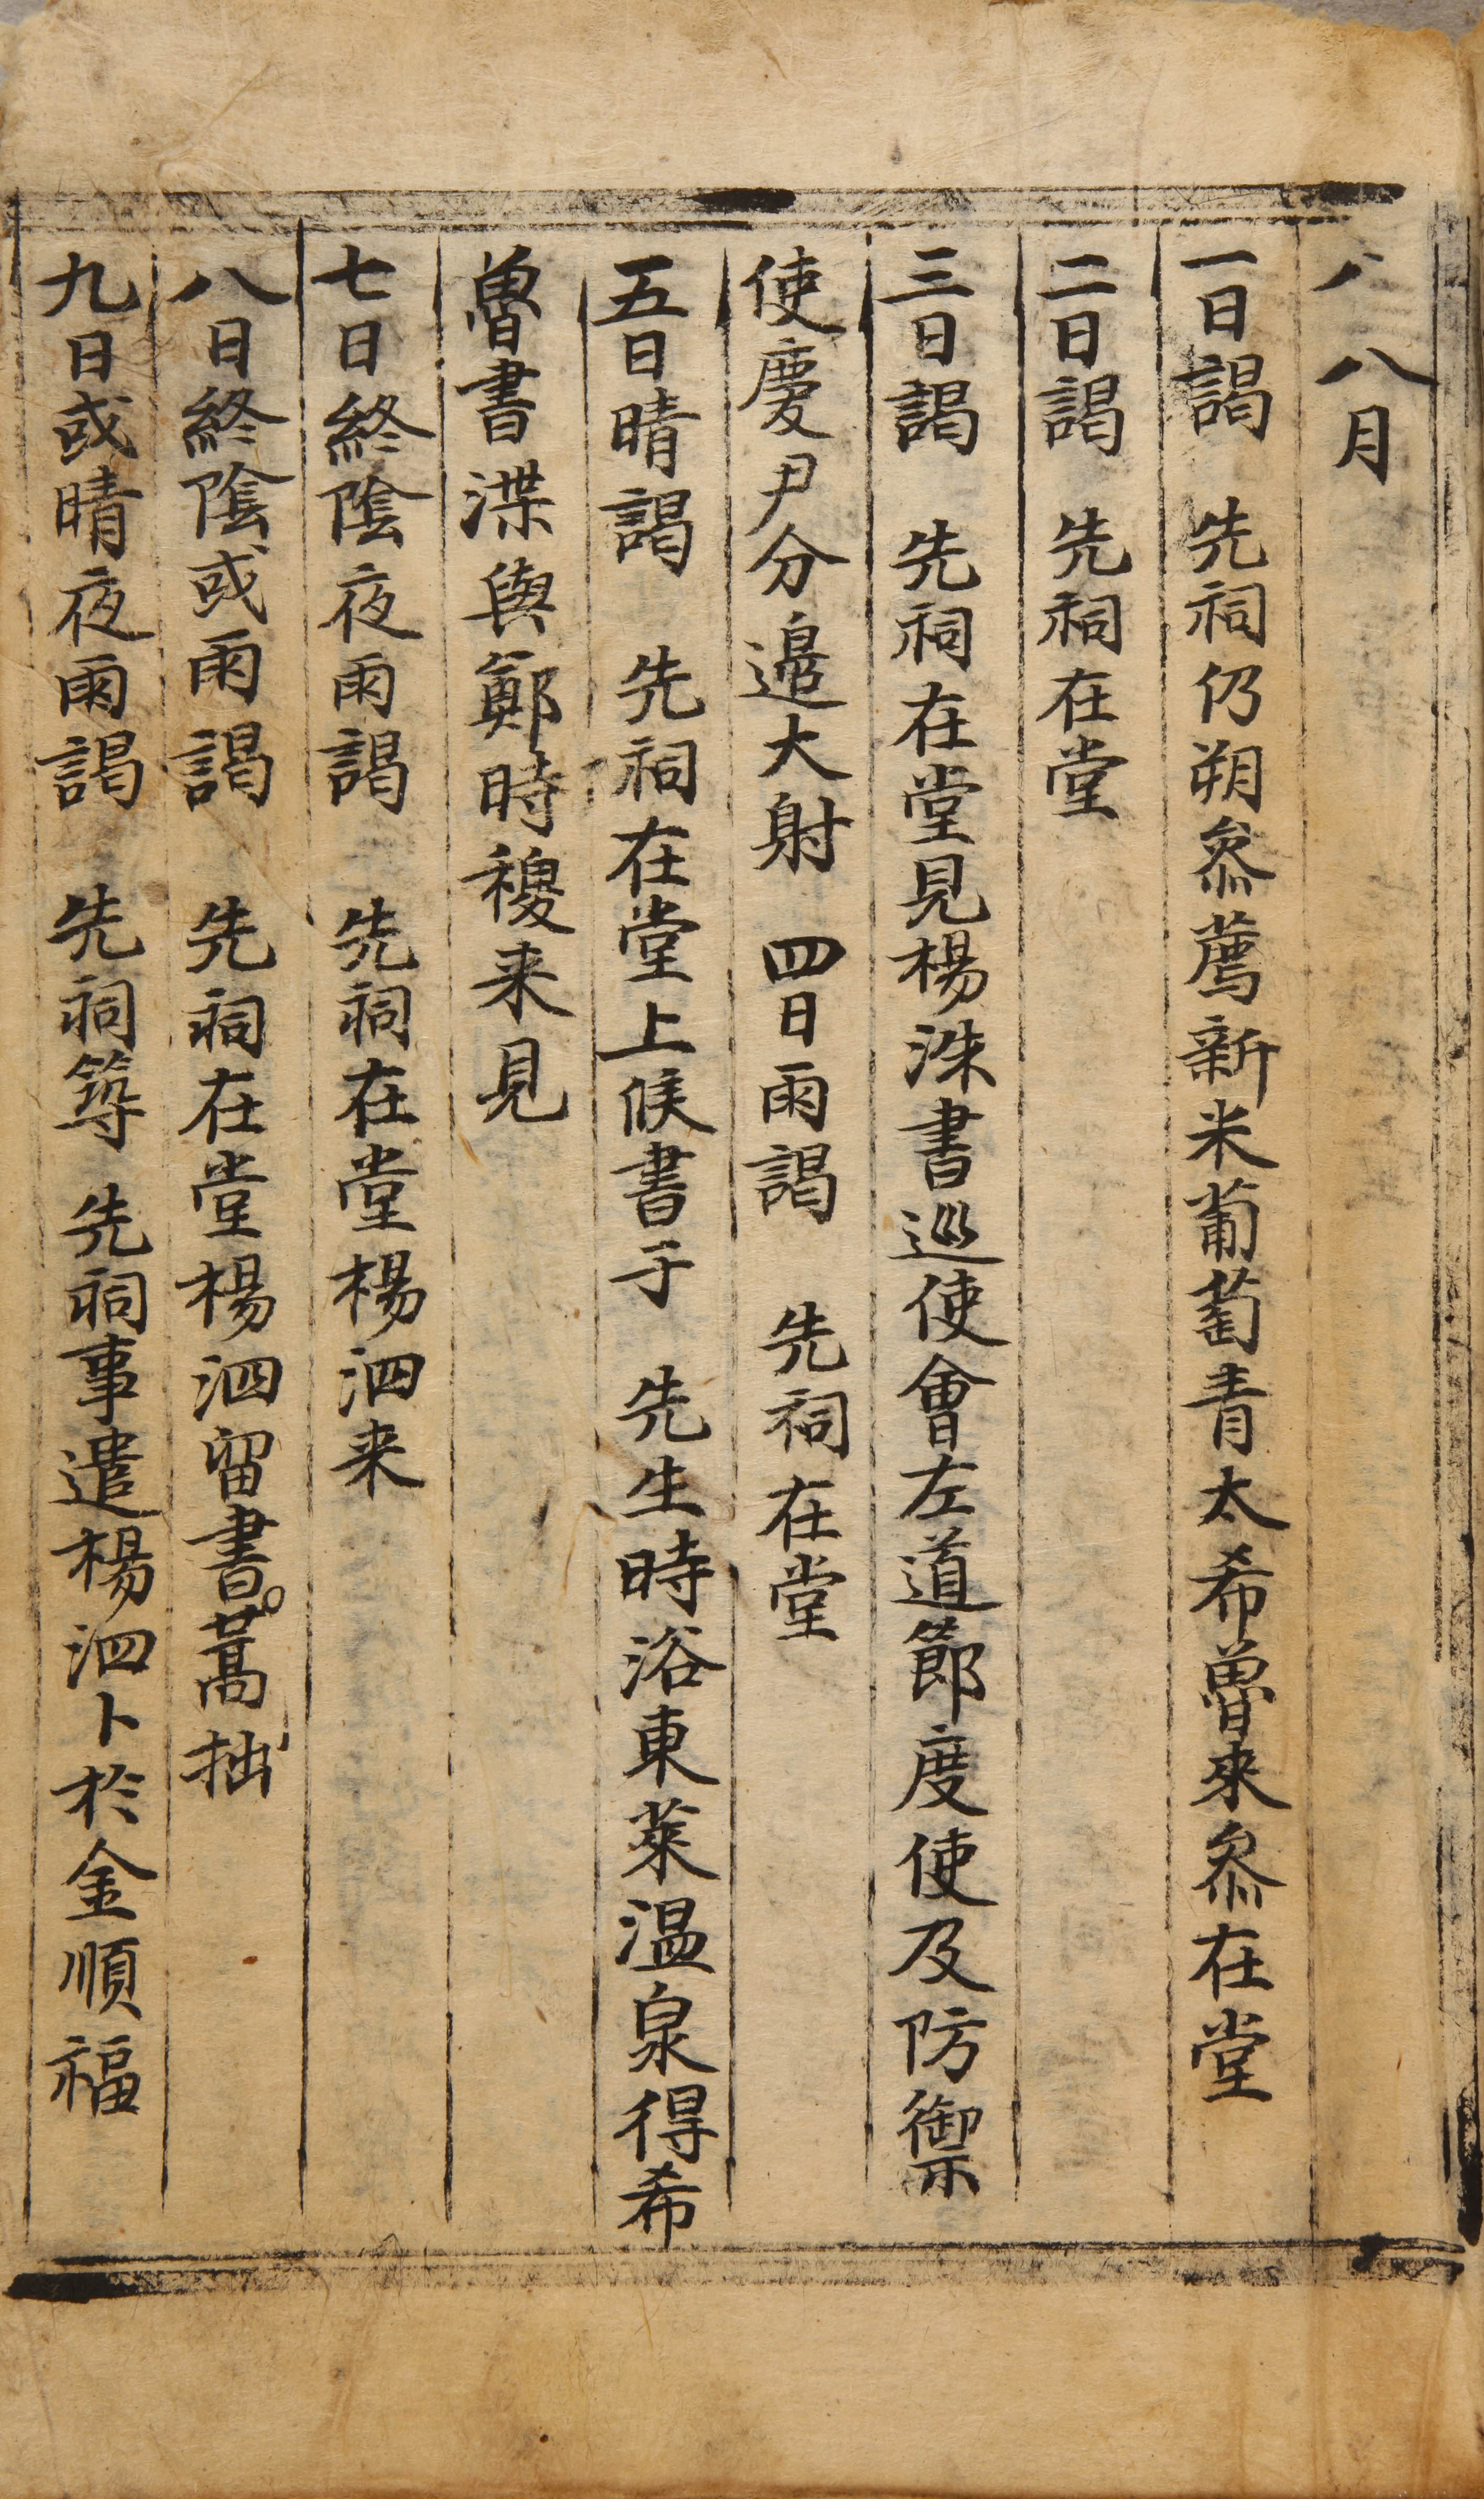 八月
一日謁 先祠仍朔叅薦新米葡萄青太希魯來叅在堂
二日謁 先祠在堂
三日謁 先祠在堂見楊洙書巡使會左道節度使及防禦
使慶尹分邉大射 四日雨謁 先祠在堂
五日晴謁 先祠在堂上候書于 先生時浴東萊温泉得希
魯書渫與鄭時稷来見
七日終陰夜雨謁 先祠在堂楊泗来
八日終陰或雨謁 先祠在堂楊泗留書蒿拙
九日或晴夜雨謁 先祠筭 先祠事遣楊泗卜於金順福